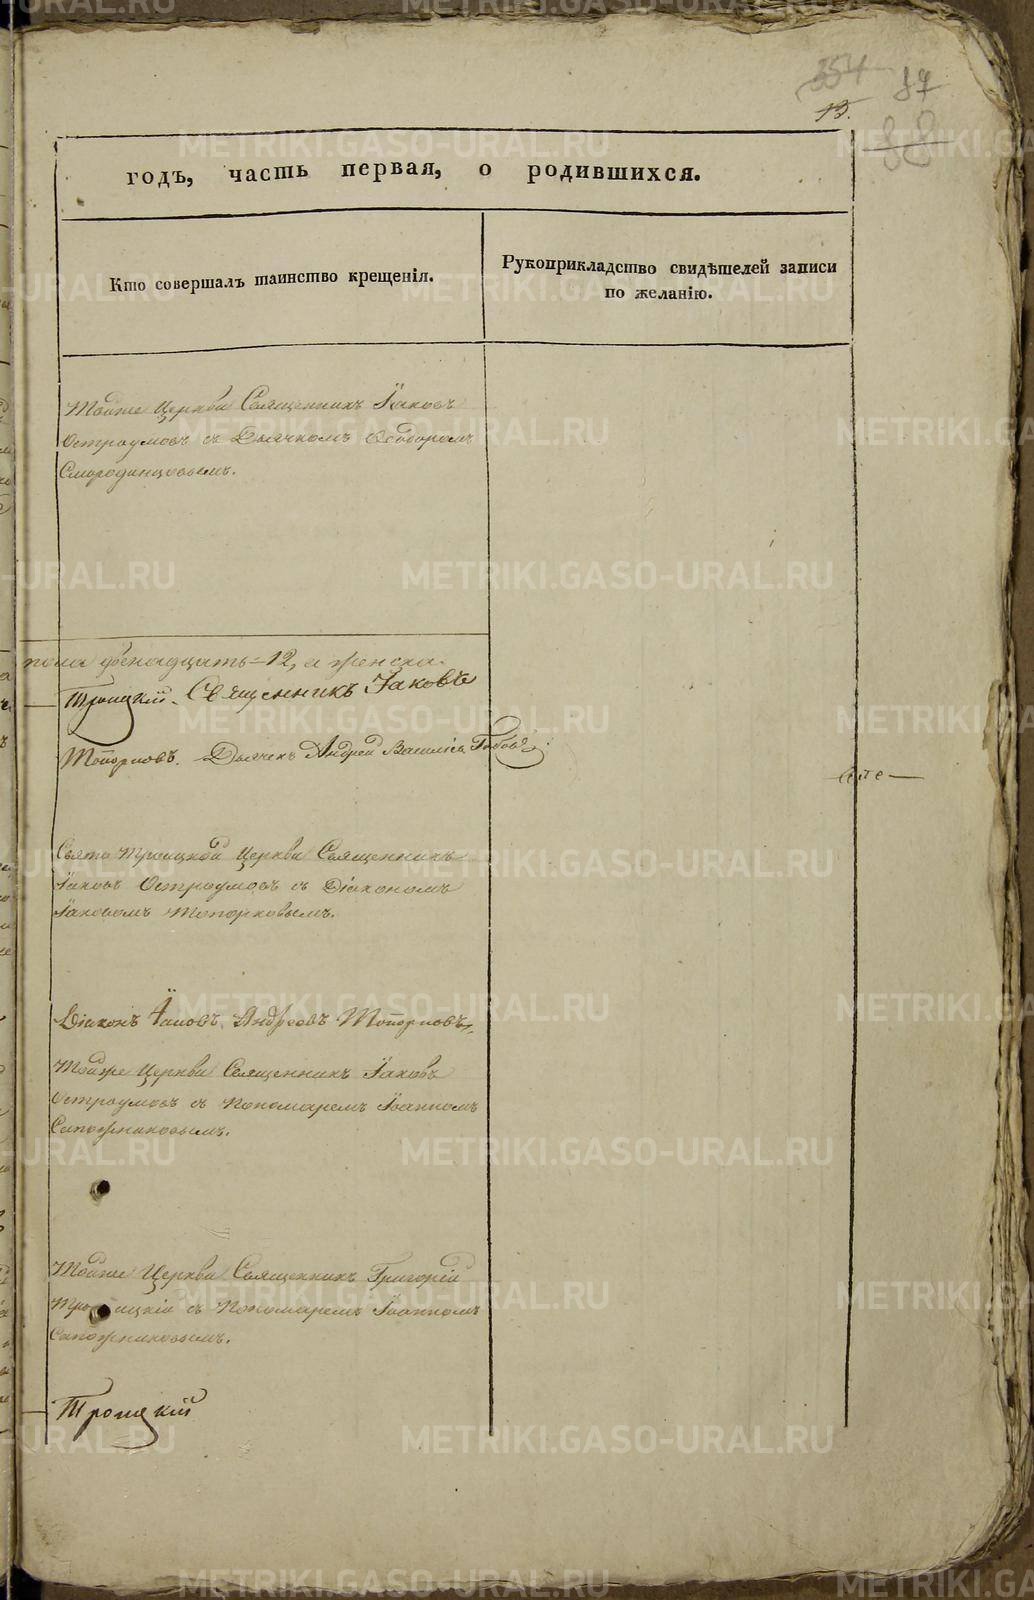 354
87
13.
88
годъ, часть первая, о родившихся.
Кто совершалъ таинство крещенія.
Рукоприкладство свидѣтелей записи
по желанію.
Тойже Церкви Священникъ Іаковъ
Остроумовъ съ Дьячкомъ Ѳеодоромъ
Смородинцовымъ.
пола двенадцать=12, а женска
Троицкій. Священникъ Іаковъ
Топорковъ. Дьячекъ Андрей Василіевъ
Свято Троицкой Церкви Священникъ
Іаковъ Остроумовъ съ Діакономъ
Іаковомъ Топорковымъ.
Діаконъ Іаковъ Андреевъ Топорковъ
Тойже Церкви Священникъ Іаковъ
Остроумовъ съ Пономаремъ Іоанномъ
Сапожниковымъ.
Тойже Церкви Священникъ Григорій
Троицкій съ Пономаремъ Іоанномъ
Сапожниковымъ.
Троицкій
METRIKI.GASO-URAL.RU